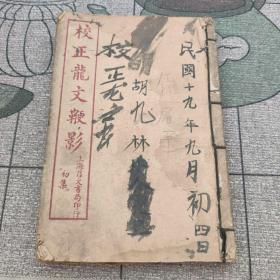 民國十九年九月初四日
胡九林
校正龍文
校正龍文鞭影
上海昌文書局印行
初集